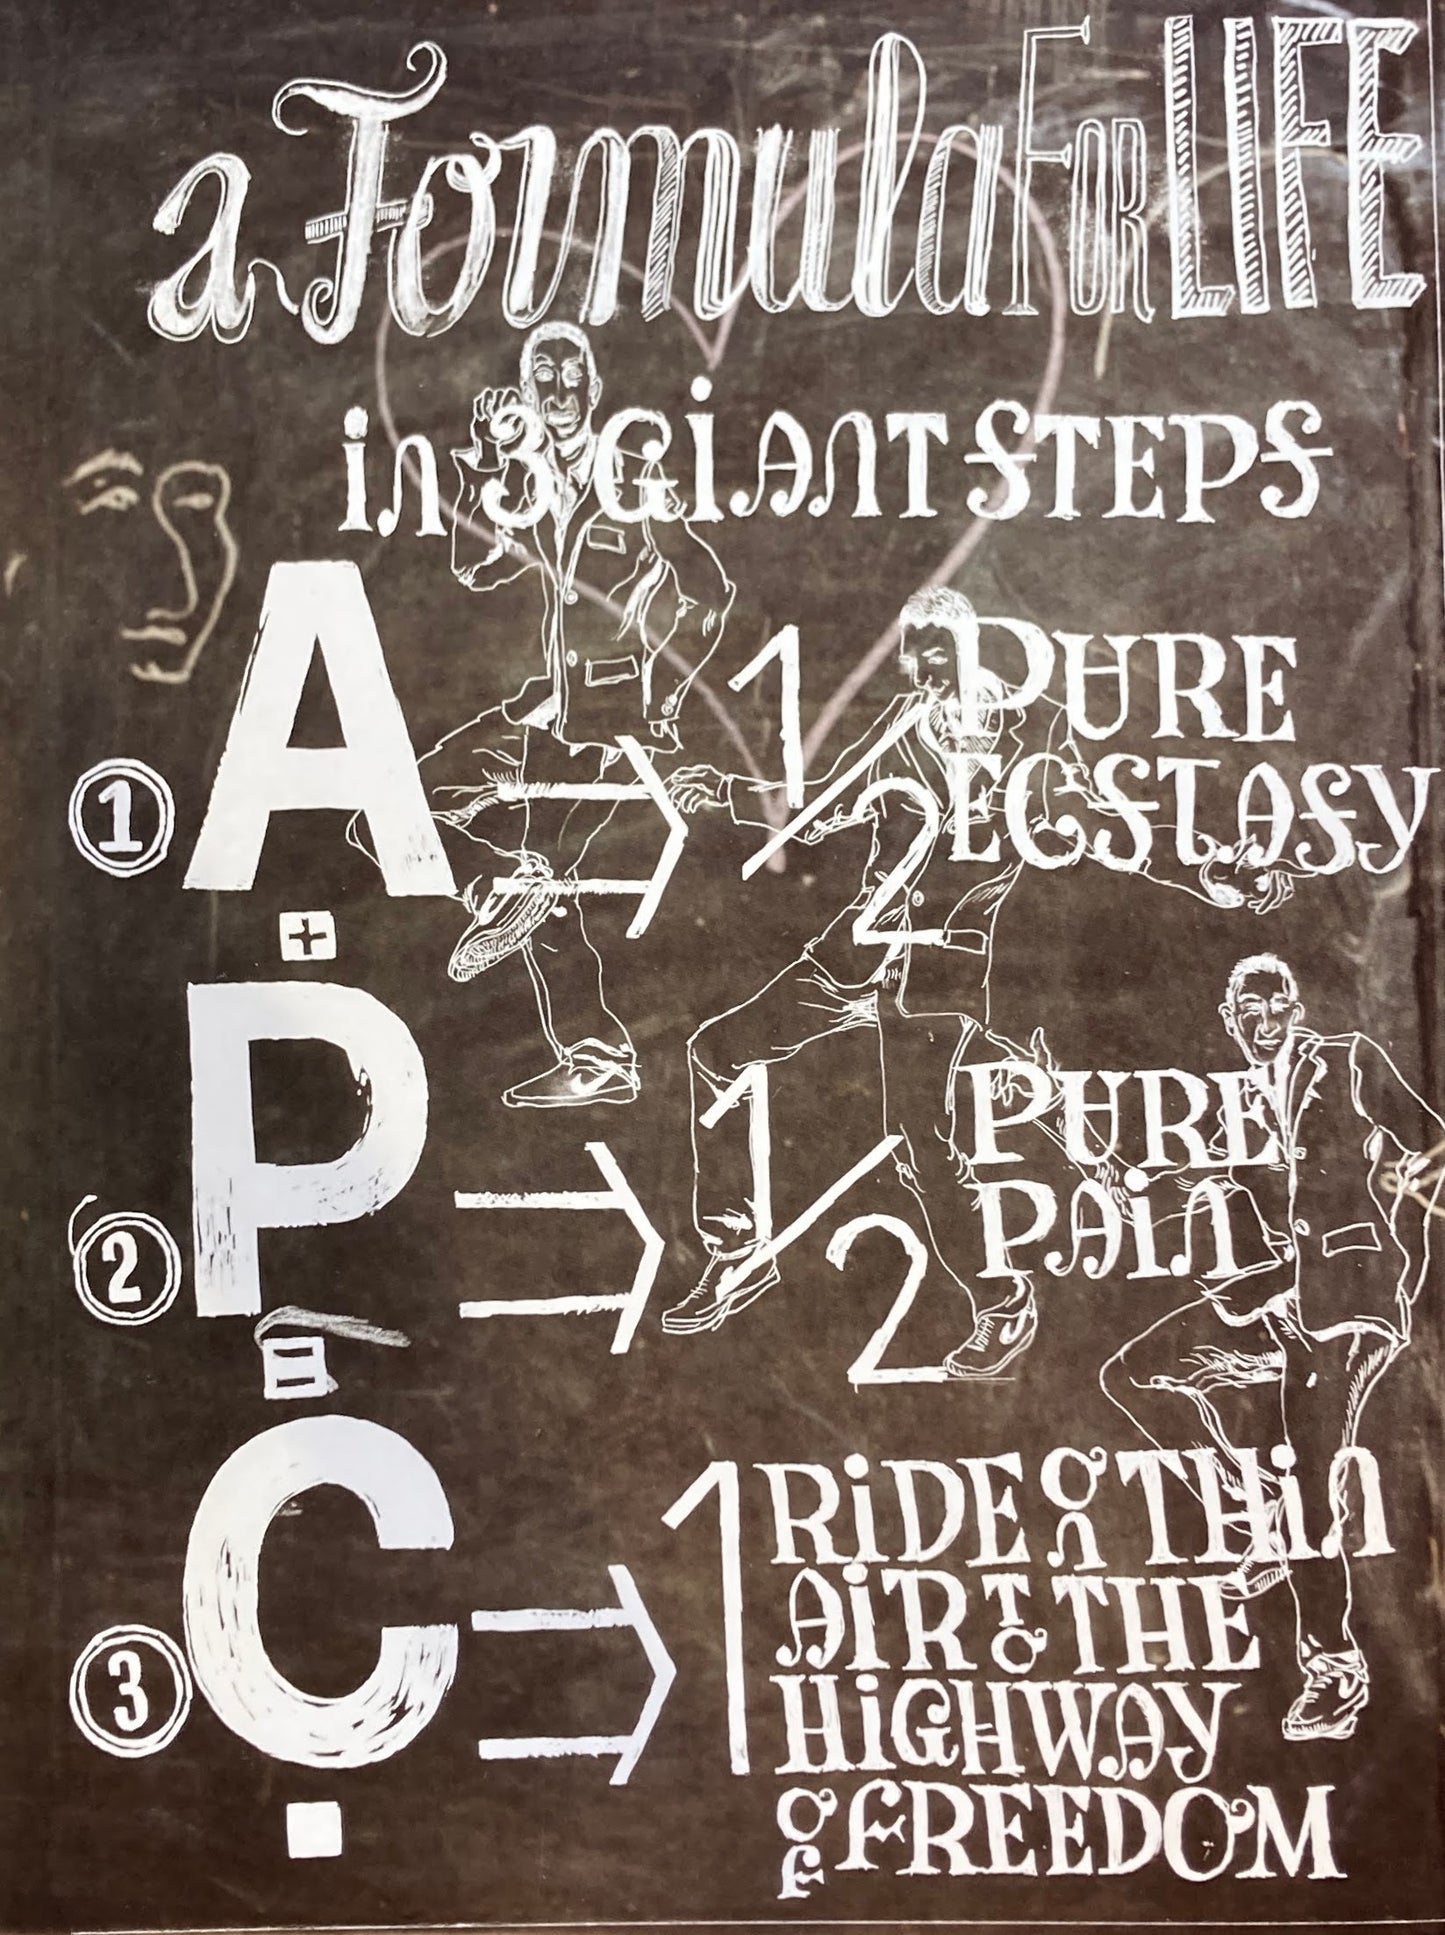 a Formula FOR LIFE
in 3 GiANT STEPS
1 A → 1/2 PURE
ECSTASY
+
2 P → 1/2 PURE
PAiN
=
3 C → 1 RiDE ON THiN
AiR TO THE
HiGHWAY
OF FREEDOM